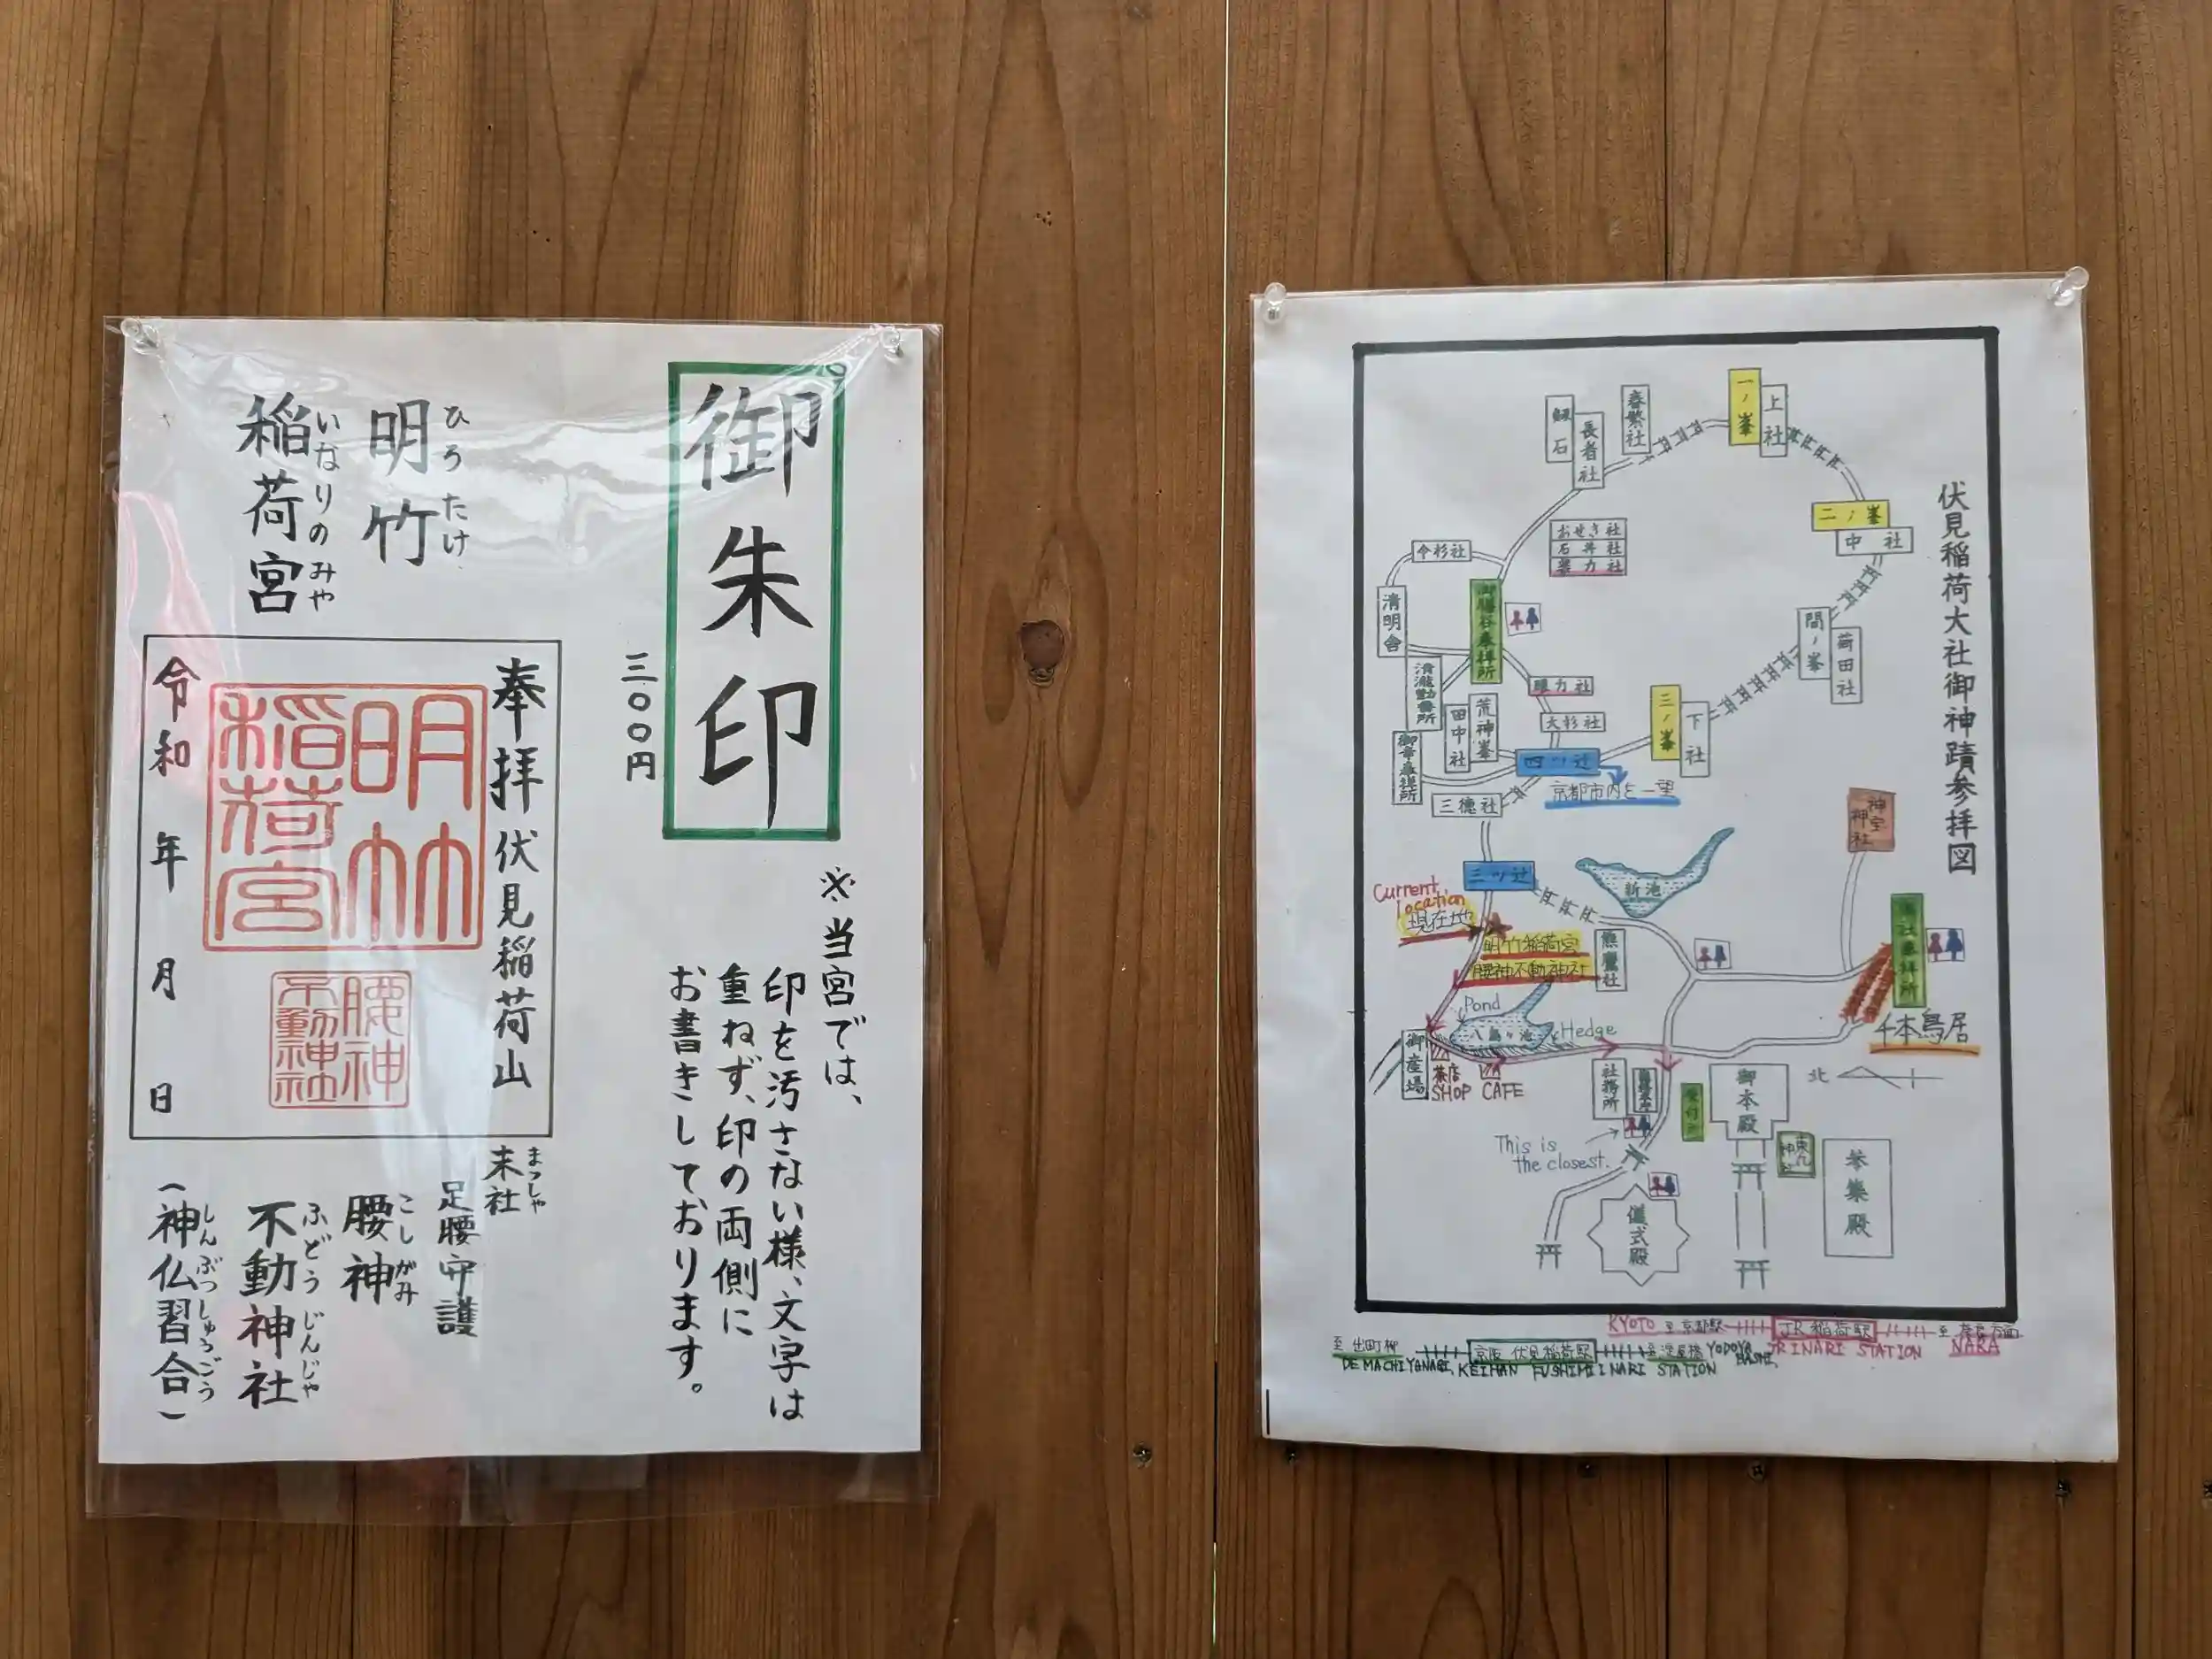 御朱印
三〇〇円
※当宮では、
印を汚さない様、文字は
重ねず、印の両側に
お書きしております。
明竹
ひろたけ
稲荷宮
いなりのみや
奉拝 伏見稲荷山
明竹
稲荷宮
腰神
不動神社
令和 年 月 日
末社
まつしゃ
足腰守護
腰神
こしがみ
不動神社
ふどうじんじゃ
(神仏習合)
しんぶつしゅうごう
伏見稲荷大社御神蹟参拝図
一ノ峯
上社
春繁社
長者社
釼石
二ノ峯
中社
おせき社
石井社
薬力社
令杉社
清明舎
御膳谷奉拝所
間ノ峯
荷田社
清滝
眼力社
大杉社
荒神峯
田中社
三ノ峯
下社
四ツ辻
京都市内を一望
御幸奉拝所
三徳社
三ツ辻
新池
Current location
現在地
明竹稲荷宮
腰神不動神社
熊鷹社
神宝神社
奥社奉拝所
千本鳥居
Pond
八島ヶ池
Hedge
御産場
茶店
SHOP
CAFE
社務所
御本殿
北
This is
the closest.
儀式殿
参集殿
KYOTO 至京都駅
JR稲荷駅
JR INARI STATION
至奈良方面
NARA
至出町柳
DEMACHIYANAGI.
京阪 伏見稲荷駅
KEIHAN FUSHIMI INARI STATION
至淀屋橋 YODOYA BASHI.